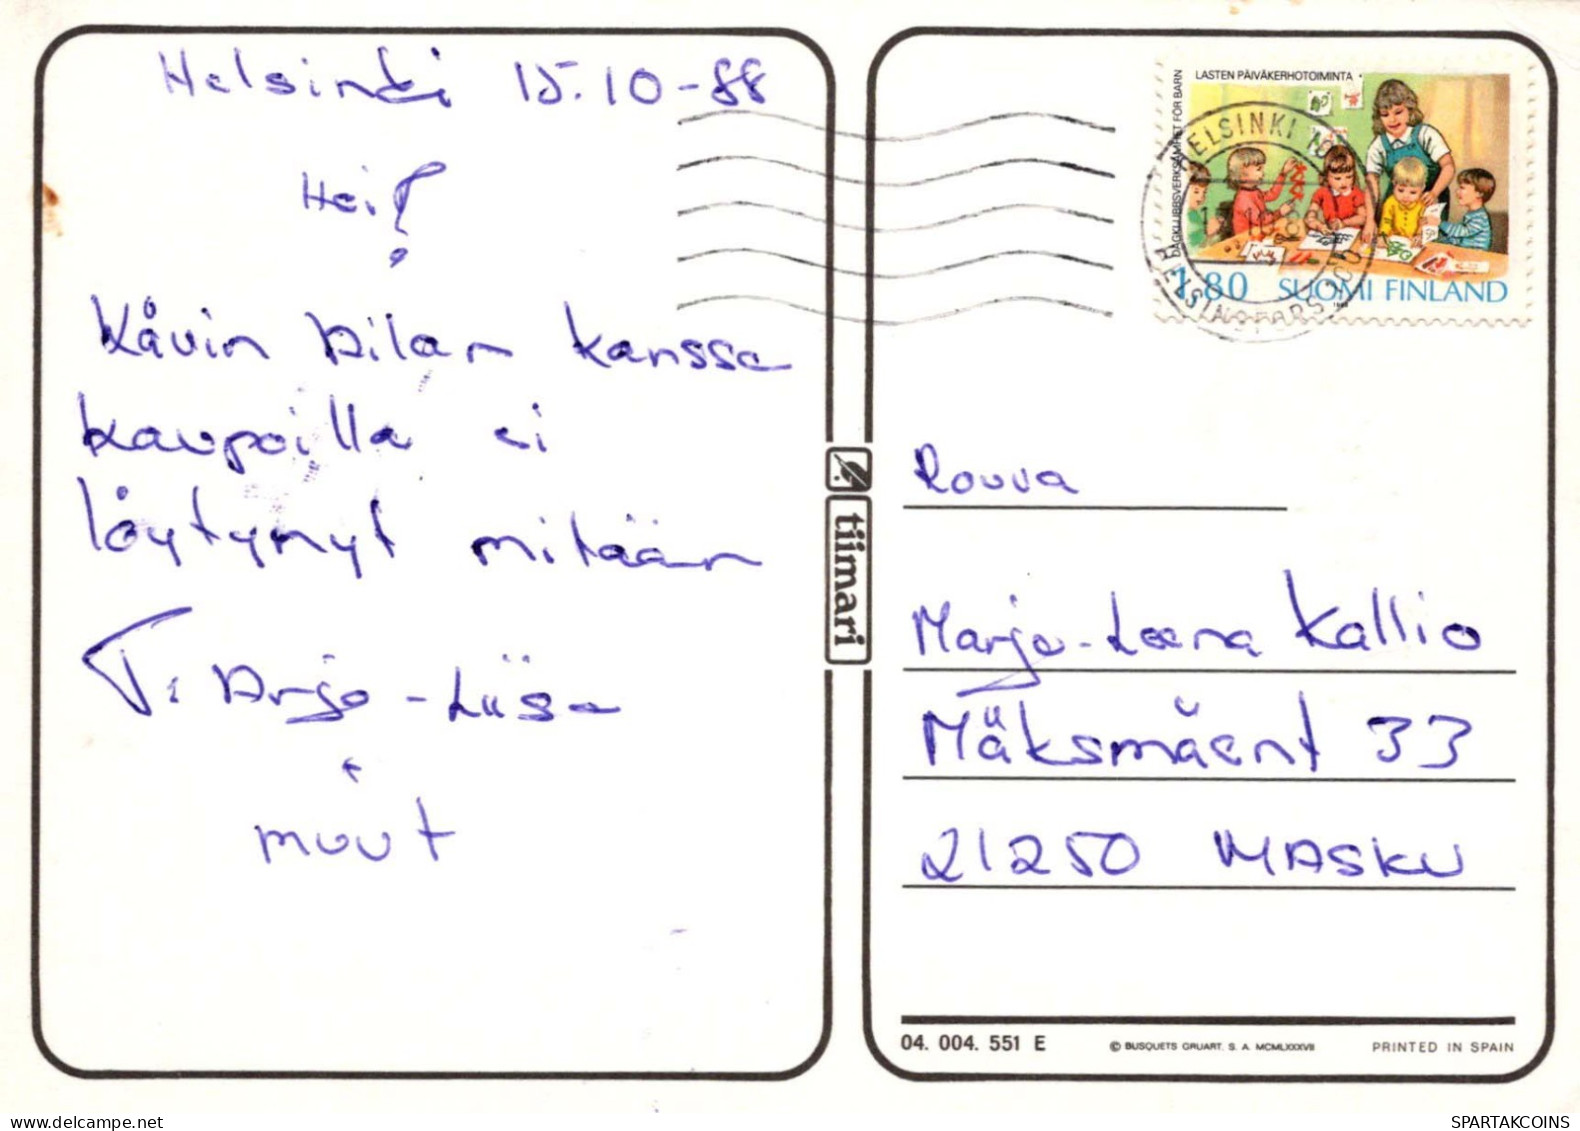 Helsinki 15.10-88
Hei!
Kåvin Ailan kanssa
kaupoilla ei
löytynyt mitään
T: Arja-Liisa
+
muut
tiimari
LASTEN PÄIVÄKERHOTOIMINTA
DAGKLUBBSVERKSAMHET FÖR BARN
1,80 SUOMI FINLAND
1988
HELSINKI 10
HELSINGFORS 100
Rouva
Marja-Leena Kallio
Mäksmäent 33
21250 MASKU
04. 004. 551 E
© BUSQUETS GRUART. S. A. MCMLXXXVII
PRINTED IN SPAIN
SPARTAKCOINS.COM